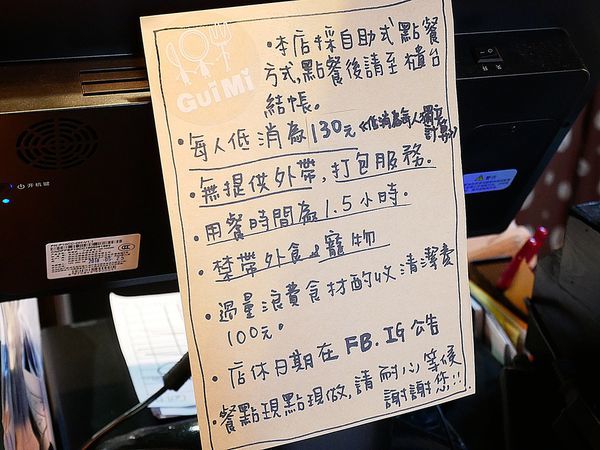 GuiMi
•本店採自助式點餐
方式,點餐後請至櫃台
結帳。
•每人低消為130元《低消為每人獨立
計算》
•無提供外帶,打包服務.
•用餐時間為1.5小時.
•禁帶外食&寵物
•過量浪費食材酌收清潔費
100元。
•店休日期在FB.IG公告
•餐點現點現做,請耐心等候
謝謝您!!
开机键